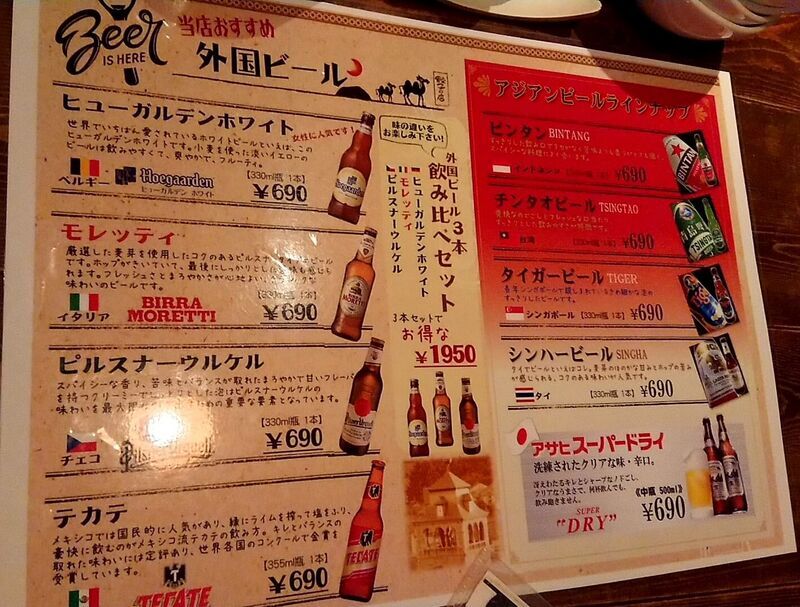 Beer
IS HERE
当店おすすめ
外国ビール
ヒューガルデンホワイト
世界でいちばん愛されているホワイトビールといえば、この
女性に人気です!
ヒューガルデンホワイトです。小麦を使った淡いイエローの
ビールは飲みやすくて、爽やかで、フルーティ。
ベルギー
Hoegaarden
ヒューガルデン ホワイト
【330ml瓶 1本】
¥690
モレッティ
厳選した麦芽を使用したコクのあるピルスナー
です。ホップがきいていて、最後にしっかりとした
れます。フレッシュさとまろやかさが心地よい
味わいのビールです。
イタリア
BIRRA
MORETTI
¥690
ピルスナーウルケル
スパイシーな香り、苦味とバランスが取れたまろやかで甘いフレーバー
を持つクリーミーで
味わいを最大限 の重要な要素となっています。
チェコ
【330ml瓶 1本】
¥690
テカテ
メキシコでは国民的に人気があり、縁にライムを搾って塩をふり、
豪快に飲むのがメキシコ流テカテの飲み方。キレとバランスの
取れた味わいには定評あり、世界各国のコンクールで金賞を
受賞しています。
TECATE
【355ml瓶 1本】
¥690
味の違いを
お楽しみ下さい!
外国ビール3本
飲み比べセット
ヒューガルデンホワイト
モレッティ
ピルスナーウルケル
3本セットで
お得な
¥1950
アジアンビールラインナップ
ビンタン BINTANG
インドネシア
【330ml瓶 1本】
¥690
チンタオビール TSINGTAO
台湾
【330ml瓶 1本】
¥690
タイガービール TIGER
すっきりしたビールです。
シンガポール
【330ml瓶 1本】
¥690
シンハービール SINGHA
タイでビールといえばコレ。麦芽のほのかな甘みとホップの苦み
が感じられる、コクのある味わいが人気です。
タイ
【330ml瓶 1本】
¥690
アサヒスーパードライ
洗練されたクリアな味・辛口。
冴えわたるキレとシャープなノド ごし。
クリアなうまさで、何杯飲んでも、
飲み飽きません。
SUPER
"DRY"
《中瓶 500ml》
¥690